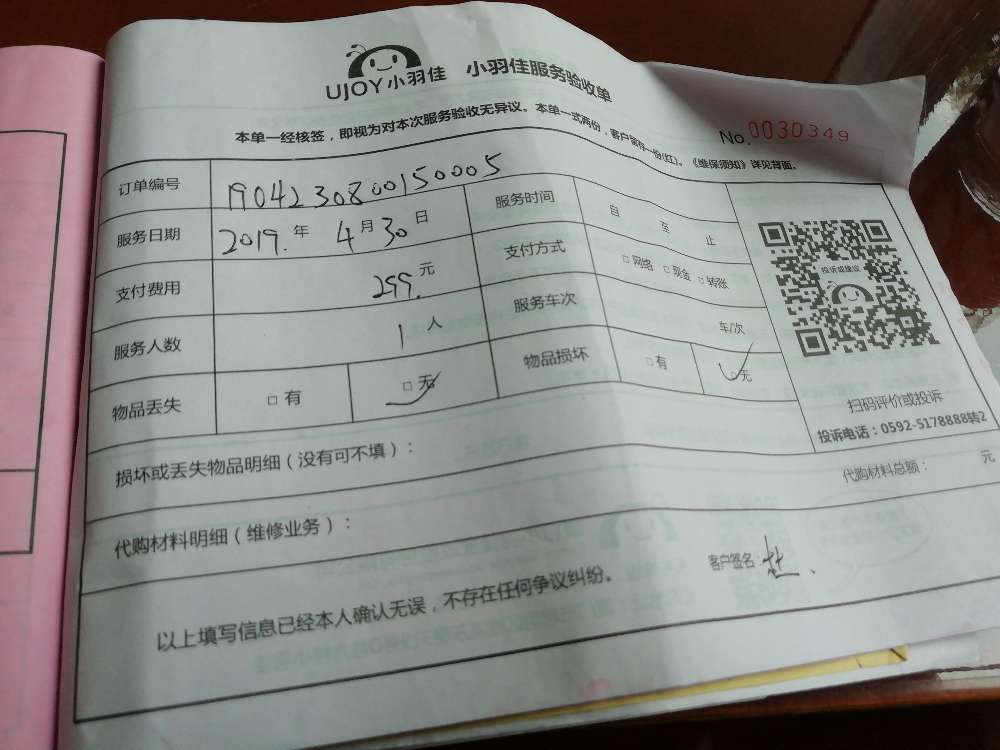 UJOY小羽佳 小羽佳服务验收单
本单一经核签，即视为对本次服务验收无异议。本单一式两份，客户留存一份(红)。《维保须知》详见背面。
No. 0030349
订单编号 1904230800150005
服务日期 2019.年 4月30日 服务时间 自 至 止
支付费用 299.元 支付方式 □网络 □现金 □转账
服务人数 1人 服务车次 车/次
物品丢失 □有 □无 物品损坏 □有 □无
投诉或建议
扫码评价或投诉
投诉电话：0592-5178888转2
损坏或丢失物品明细（没有可不填）：
代购材料明细（维修业务）： 代购材料总额： 元
以上填写信息已经本人确认无误，不存在任何争议纠纷。 客户签名：杜